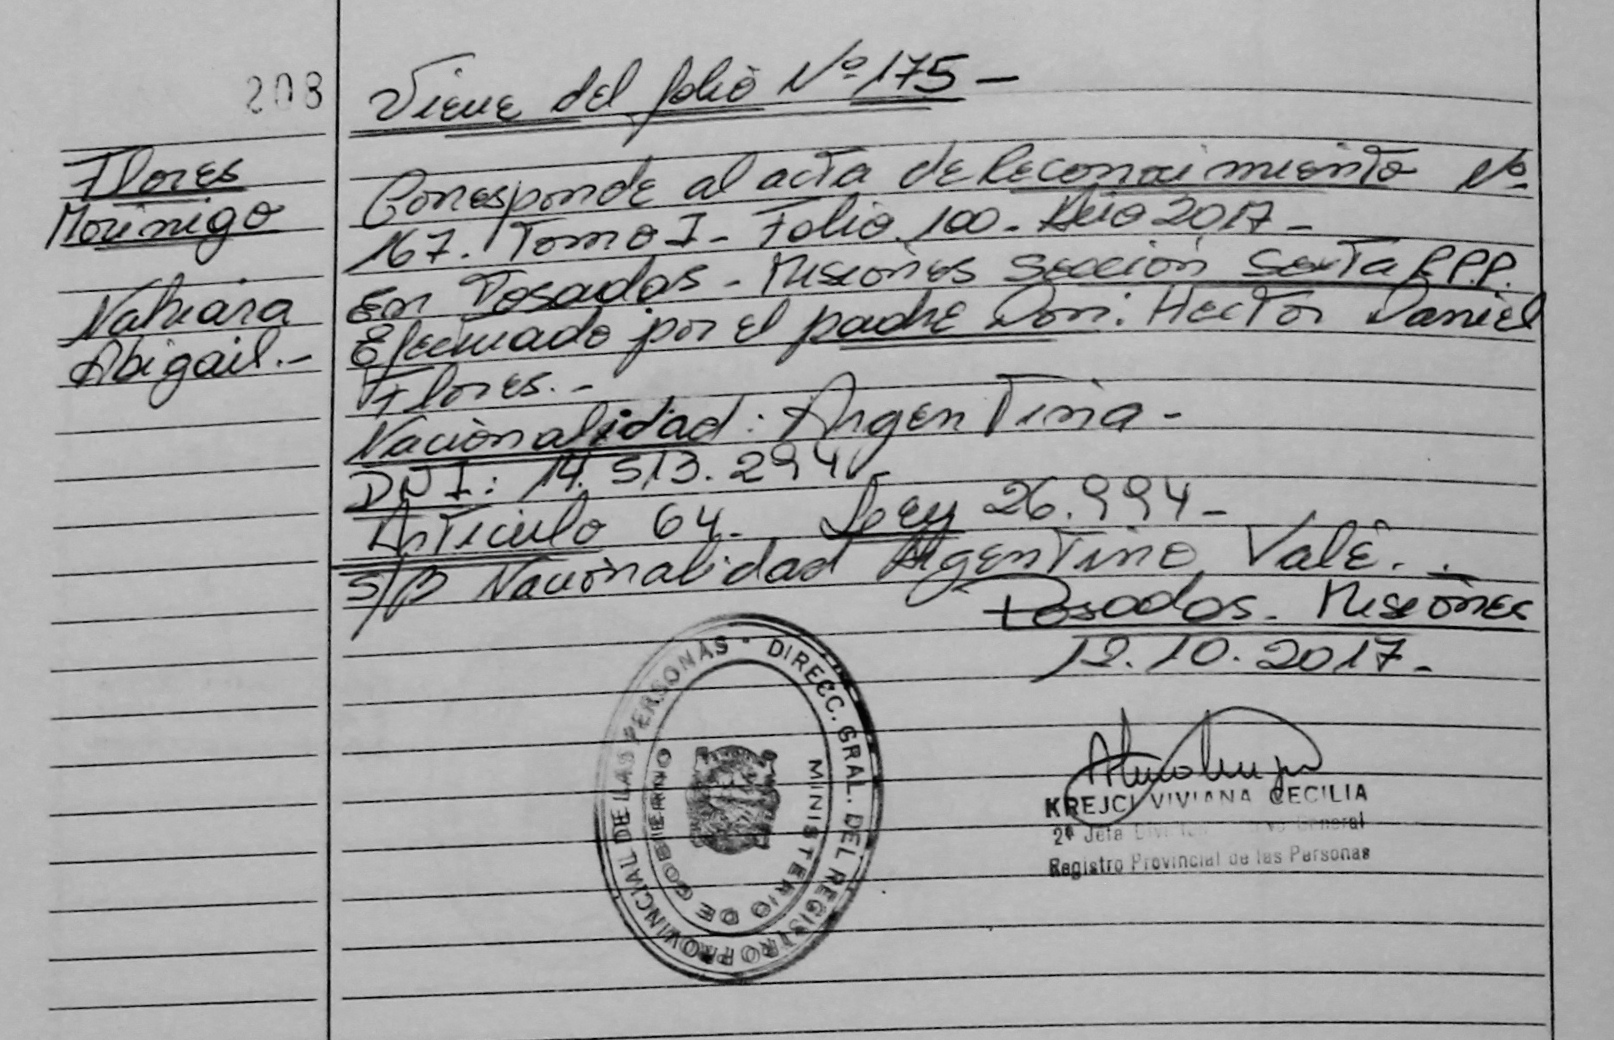 208
Flores
Morinigo
Nahiara
Abigail.-
Viene del folio Nº 175 -
Corresponde al acta de Reconocimiento Nº
167. Tomo I - Folio 100 - Año 2017 -
En Posadas - Misiones Sección Sexta R.P.P.
Efectuado por el padre Don: Hector Daniel
Flores.-
Nacionalidad: Argentina -
DNI: 14.513.294
Articulo 64 - Ley 26.994 -
S/B Nacionalidad Argentino Vale. -
Posadas - Misiones
12.10.2017 -
DIRECC. GRAL. DEL REGISTRO PROVINCIAL DE LAS PERSONAS
MINISTERIO DE GOBIERNO
KREJCI VIVIANA CECILIA
2ª Jefa General
Registro Provincial de las Personas